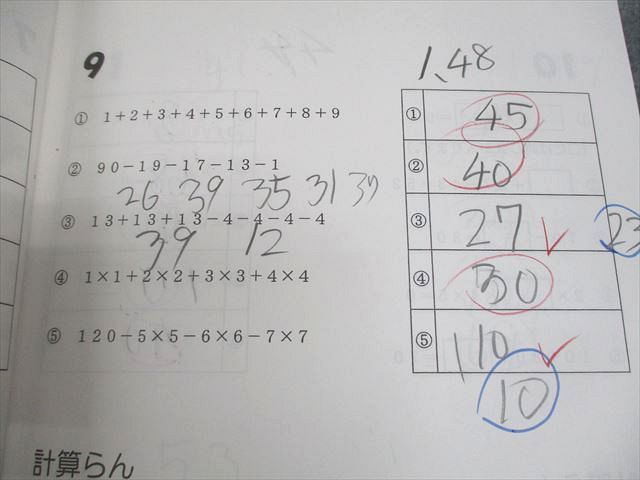 9
1、48
① 1+2+3+4+5+6+7+8+9
① 45
② 90-19-17-13-1
② 40
26 39 35 31 37
③ 13+13+13-4-4-4-4
③ 27 23
39 12
④ 1×1+2×2+3×3+4×4
④ 30
⑤ 120-5×5-6×6-7×7
⑤ 110
10
計算らん